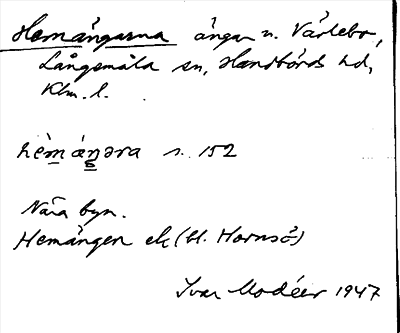 Hemängarna ängar n. Värlebo,
Långemåla sn, Handbörds hd,
Klm. l.
hèmáŋəra s. 152
Nära byn.
Hemängen ek (bl. Hornsö)
Ivar Modéer 1947